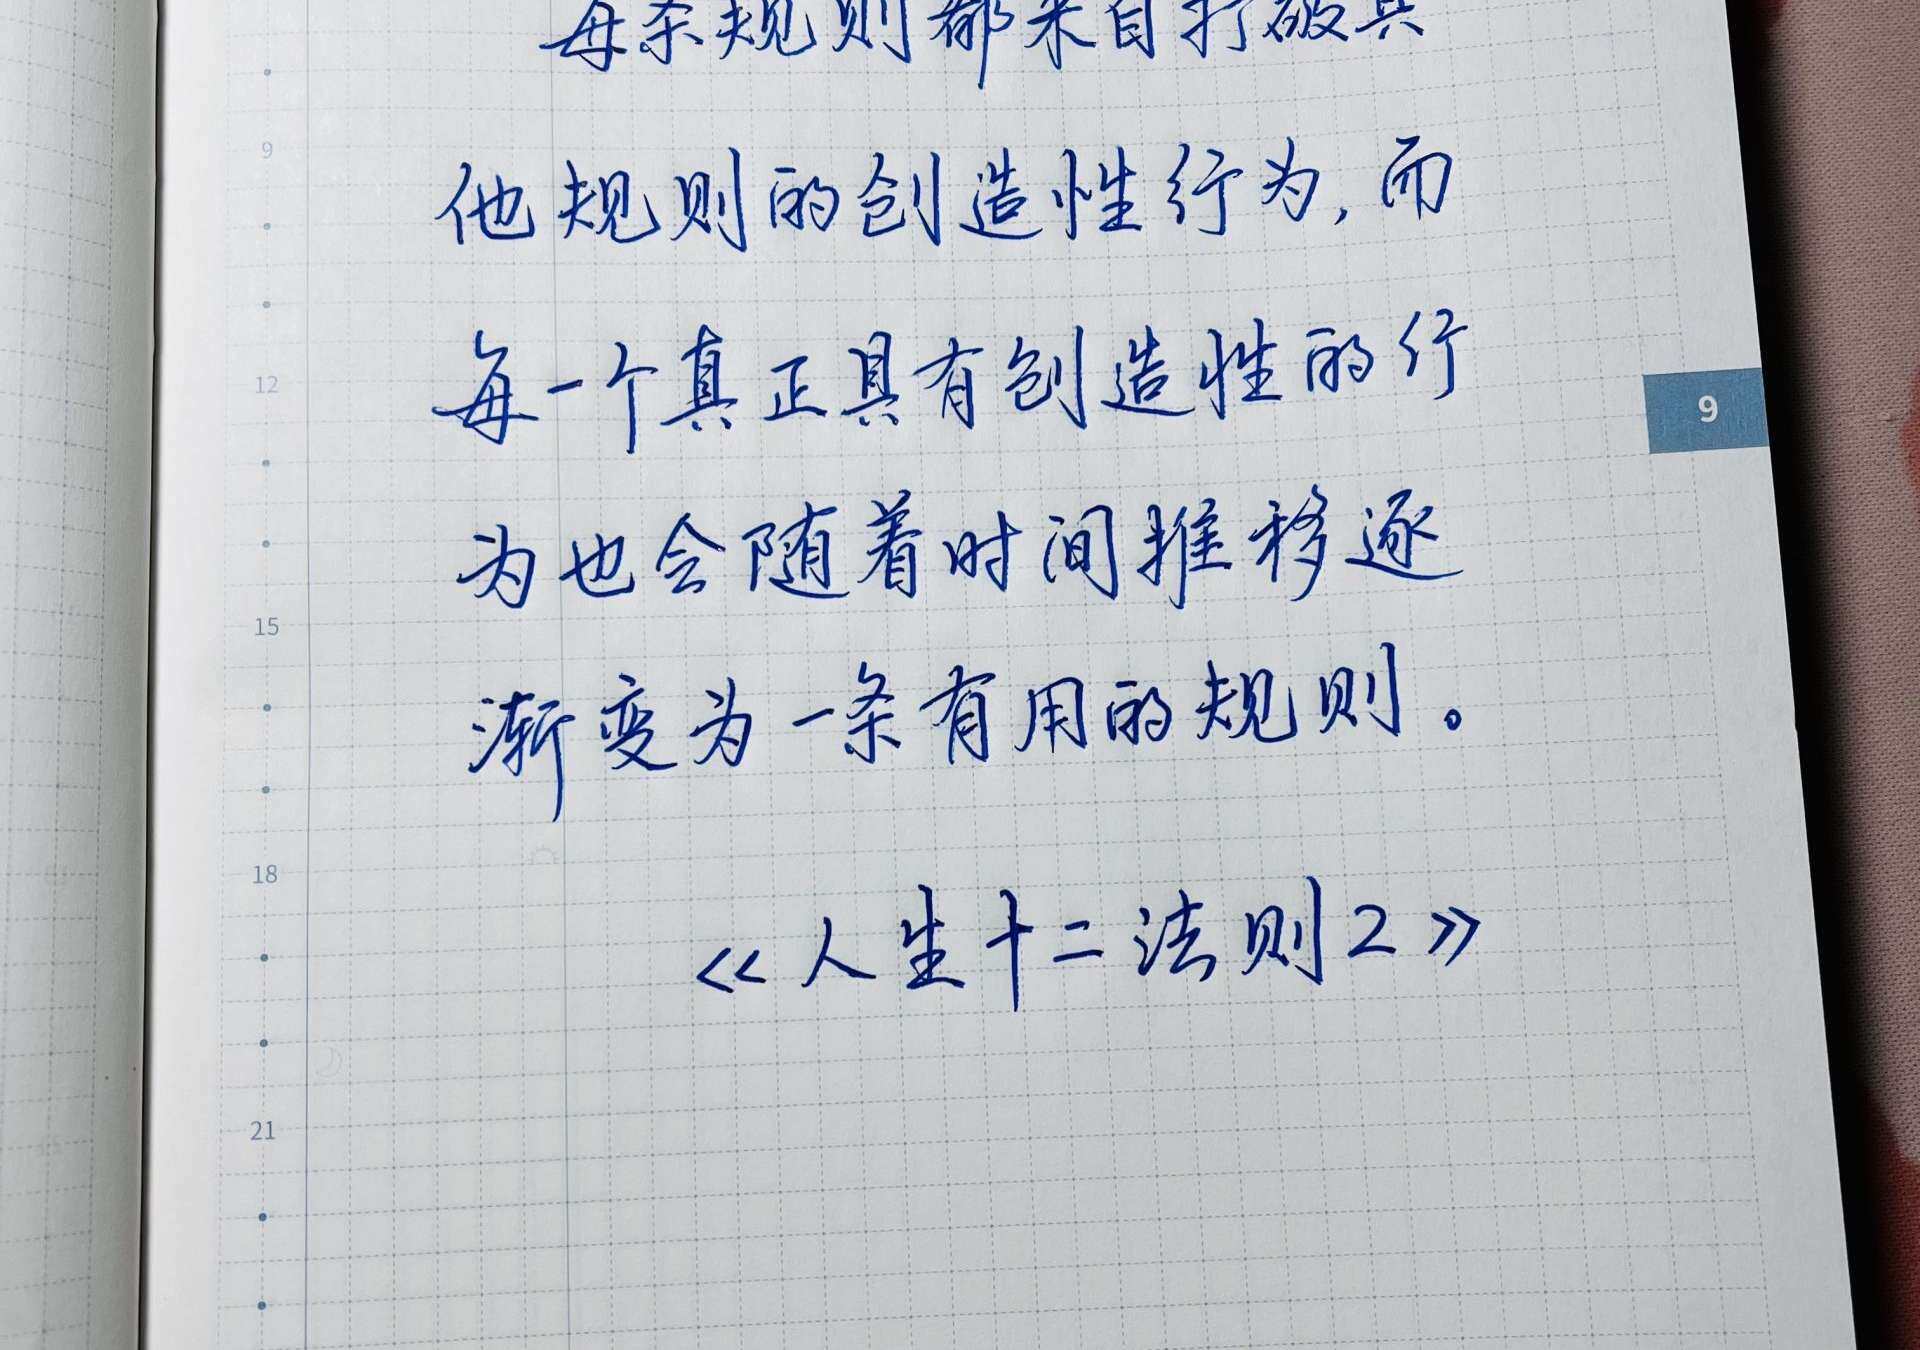 每条规则都来自打破其
9
他规则的创造性行为,而
每一个真正具有创造性的行
12
9
为也会随着时间推移逐
15
渐变为一条有用的规则。
18
《人生十二法则2》
21